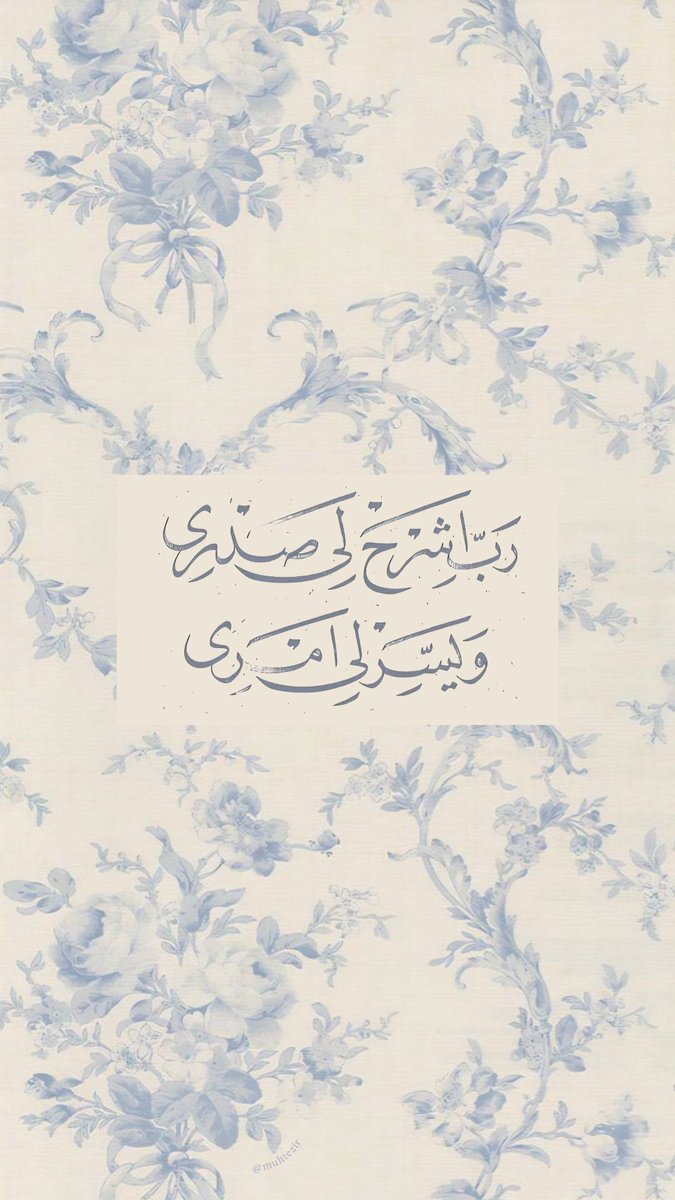 رَبِّ اشْرَحْ لِي صَدْرِي
وَيَسِّرْ لِي امْرِي
@muhtezir